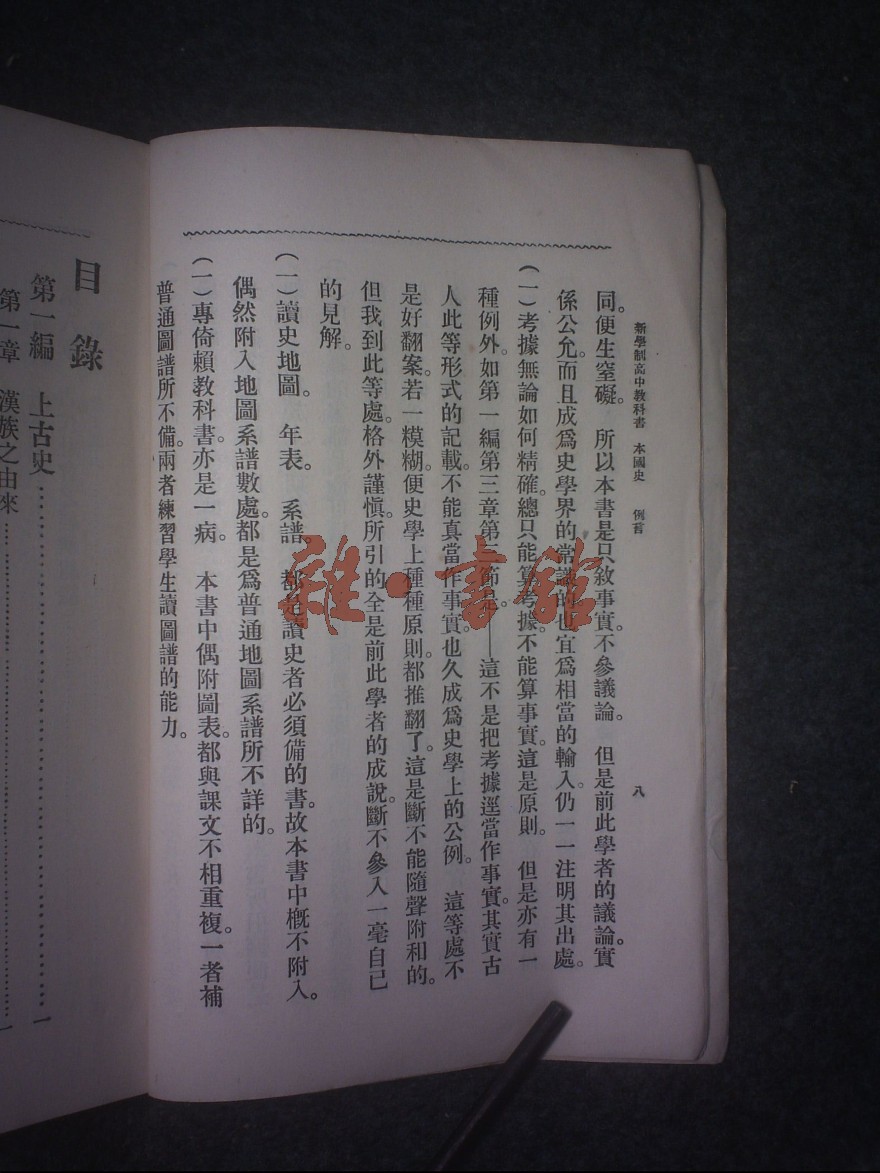 新學制高中教科書　本國史　例言
八
同。便生窒礙。　所以本書是只敘事實。不參議論。　但是前此學者的議論。實
係公允。而且成爲史學界的常識的。也宜爲相當的輸入。仍一一注明其出處。
(一)考據無論如何精確。總只能算考據。不能算事實。這是原則。　但是亦有一
種例外。如第一編第三章第節是。——這不是把考據逕當作事實。其實古
人此等形式的記載。不能真當作事實。也久成爲史學上的公例。　這等處不
是好翻案。若一模糊。便史學上種種原則。都推翻了。這是斷不能隨聲附和的。
但我到此等處。格外謹愼。所引的全是前此學者的成說。斷不參入一毫自己
的見解。
(一)讀史地圖。　年表。　系譜。　都是讀史者必須備的書。故本書中槪不附入。
偶然附入地圖系譜數處。都是爲普通地圖系譜所不詳的。
(一)專倚賴教科書。亦是一病。　本書中偶附圖表。都與課文不相重複。一者補
普通圖譜所不備。兩者練習學生讀圖譜的能力。
目錄
第一編　上古史……………………………………一
第一章　漢族之由來……………………………一
雜·書館